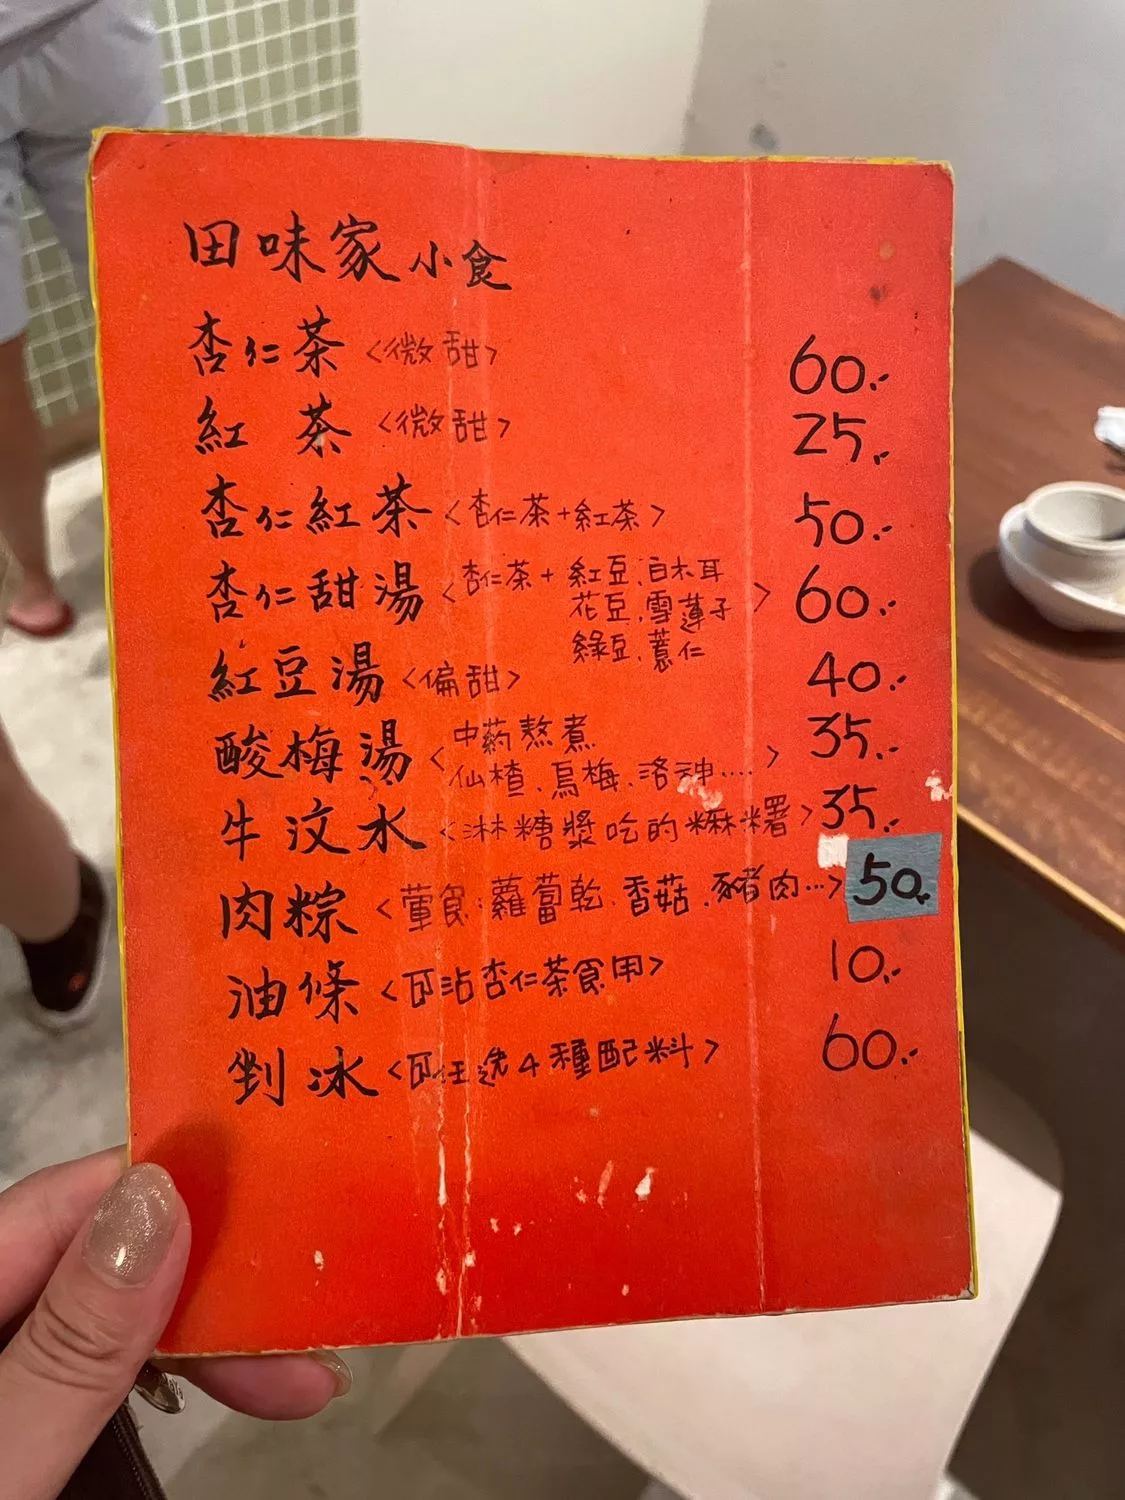 田味家小食
杏仁茶<微甜> 60.-
紅茶<微甜> 25.-
杏仁紅茶<杏仁茶+紅茶> 50.-
杏仁甜湯<杏仁茶+紅豆.白木耳 60.-
花豆.雪蓮子>
綠豆.薏仁
紅豆湯<偏甜> 40.-
酸梅湯<中藥熬煮 35.-
仙楂.烏梅.洛神....>
牛汶水<淋糖漿吃的麻糬> 35.-
肉粽<葷食:蘿蔔乾.香菇.豬肉...> 50.-
油條<可沾杏仁茶食用> 10.-
剉冰<可任選4種配料> 60.-